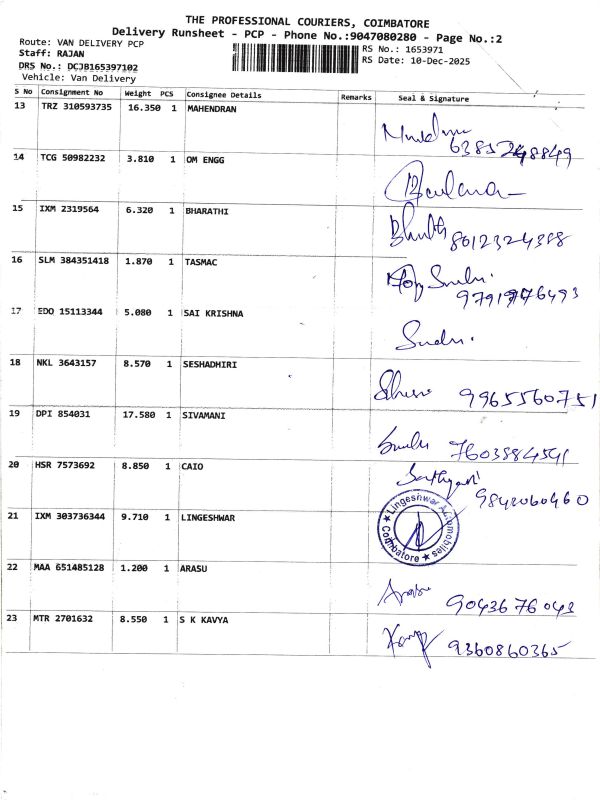 THE PROFESSIONAL COURIERS, COIMBATORE
Delivery Runsheet - PCP - Phone No.:9047080280 - Page No.:2
Route: VAN DELIVERY PCP
RS No.: 1653971
Staff: RAJAN
RS Date: 10-Dec-2025
DRS No.: DCJB165397102
Vehicle: Van Delivery
S No Consignment No Weight PCS Consignee Details Remarks Seal & Signature
13 TRZ 310593735 16.350 1 MAHENDRAN
14 TCG 50982232 3.810 1 OM ENGG
15 IXM 2319564 6.320 1 BHARATHI
8012324388
16 SLM 384351418 1.870 1 TASMAC
17 EDO 15113344 5.080 1 SAI KRISHNA
18 NKL 3643157 8.570 1 SESHADHIRI
9965560751
19 DPI 854031 17.580 1 SIVAMANI
7603884541
20 HSR 7573692 8.850 1 CAIO
9842060460
21 IXM 303736344 9.710 1 LINGESHWAR
Lingeshwar Automobiles
Coimbatore
22 MAA 651485128 1.200 1 ARASU
9043676043
23 MTR 2701632 8.550 1 S K KAVYA
9360860365